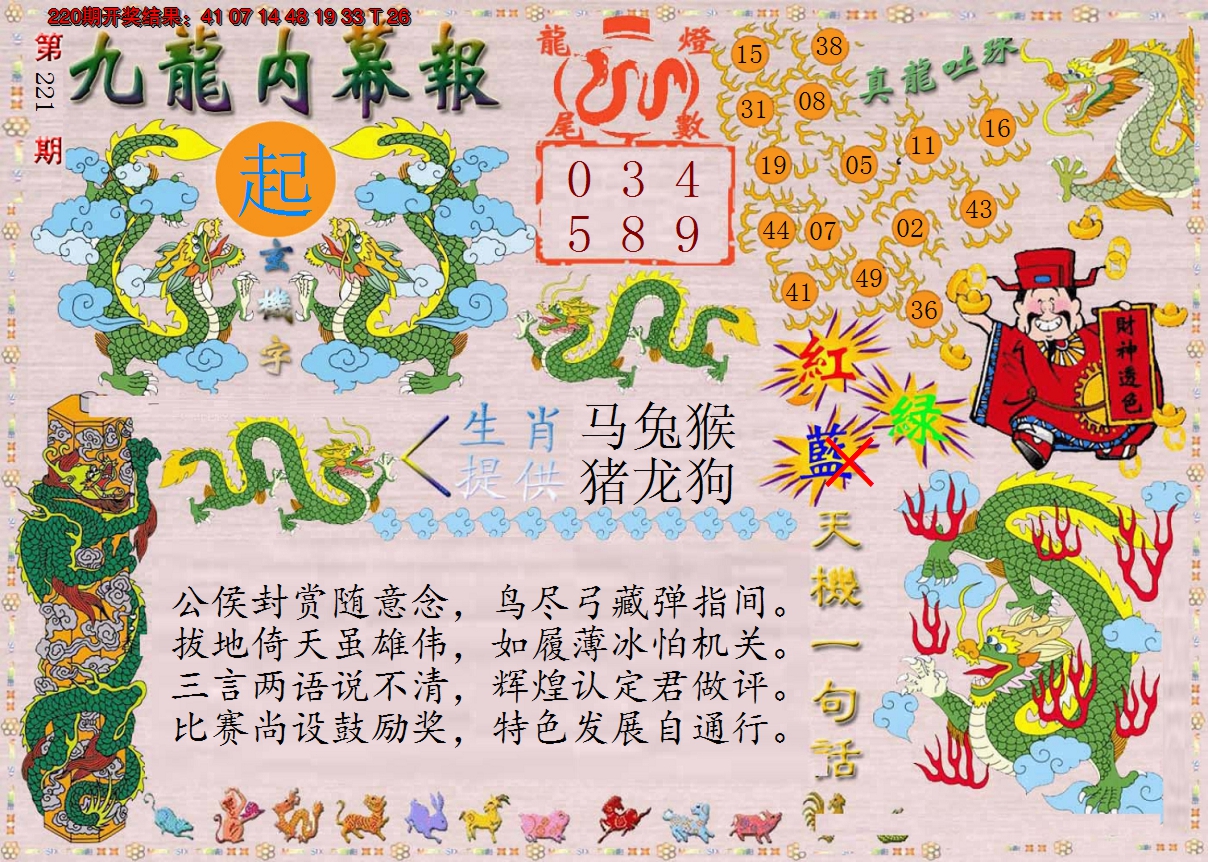 220期开奖结果：41 07 14 48 19 33 T 26
第221期
九龍内幕報
起
玄機字
龍燈
尾數
0 3 4
5 8 9
真龍吐珠
15 38
31 08
19 05 11 16
44 07 02 43
41 49 36
財神透色
紅
綠
藍
生肖提供
马兔猴
猪龙狗
天機一句話
公侯封赏随意念，鸟尽弓藏弹指间。
拔地倚天虽雄伟，如履薄冰怕机关。
三言两语说不清，辉煌认定君做评。
比赛尚设鼓励奖，特色发展自通行。